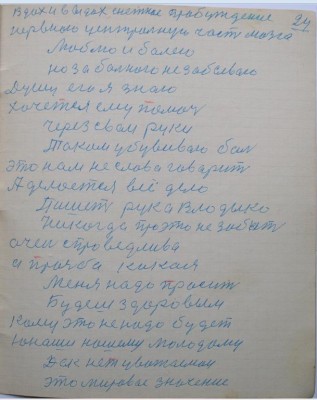 24
Вдох и выдох счетное пробуждение
нервную центральную часть мозга
Люблю и болею
но за больного не забываю
Душу его я знаю
хочется ему помоч
через свои руки
Таком убуиваю бол
это нам не слова говарит
А делоется всё дело
Пишет рука Владыко
Никогда про это не забыт
очен строведлива
и прозба какая
Меня надо просит
Будеш здоровым
Кому это ненадо будет
Юнаши нашому молодому
Век нет уважаемои
это мировое значение